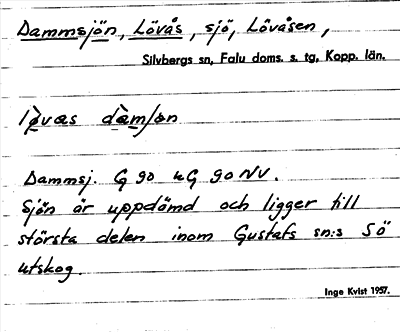 Dammsjön, Lövås, sjö, Lövåsen,
Silvbergs sn, Falu doms. s. tg, Kopp. län.
Dammsj. G 90 u G 90 NV.
Sjön är uppdämd och ligger till
största delen inom Gustafs sn:s SÖ
utskog.
Inge Kvist 1957.